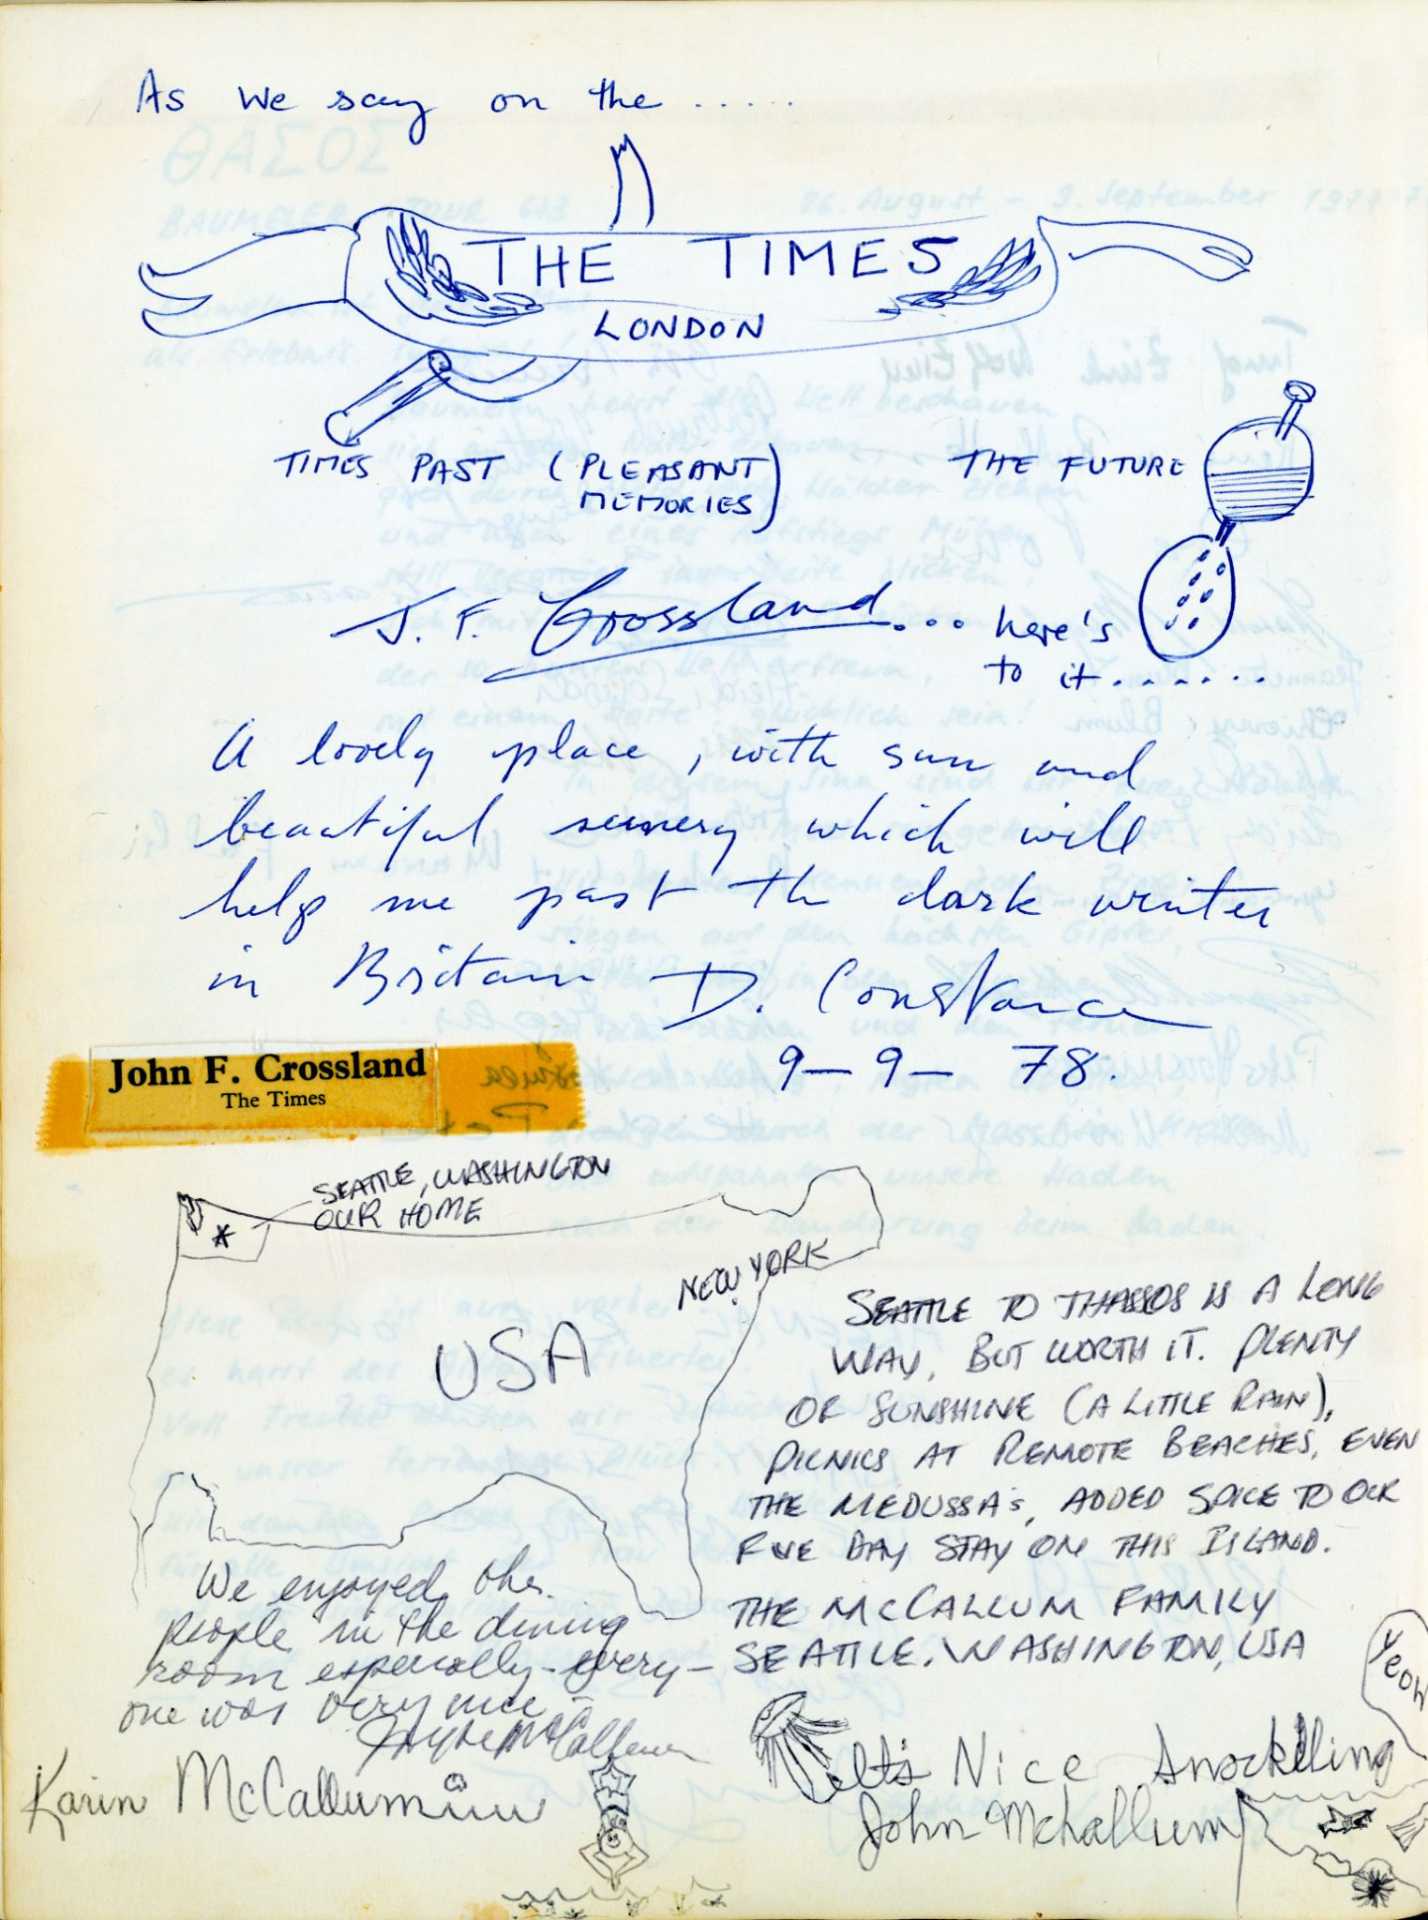 As we say on the .....
THE TIMES
LONDON
TIMES PAST (PLEASANT MEMORIES)
THE FUTURE
J. F. Crossland... here's
to it.......
A lovely place, with sun and
beautiful scenery which will
help me past the dark winter
in Britain D. Constance
9-9-78.
John F. Crossland
The Times
SEATTLE, WASHINGTON
OUR HOME
NEW YORK
USA
SEATTLE TO THASSOS IS A LONG
WAY, BUT WORTH IT. PLENTY
OF SUNSHINE (A LITTLE RAIN),
PICNICS AT REMOTE BEACHES, EVEN
THE MEDUSSA'S, ADDED SPICE TO OUR
FIVE DAY STAY ON THIS ISLAND.
THE MCCALLUM FAMILY
SEATTLE, WASHINGTON, USA
We enjoyed the
people in the dining
room especially - every-
one was very nice -
McCallum
Karin McCallum
Yeah
It's Nice Snorkelling
John McCallum